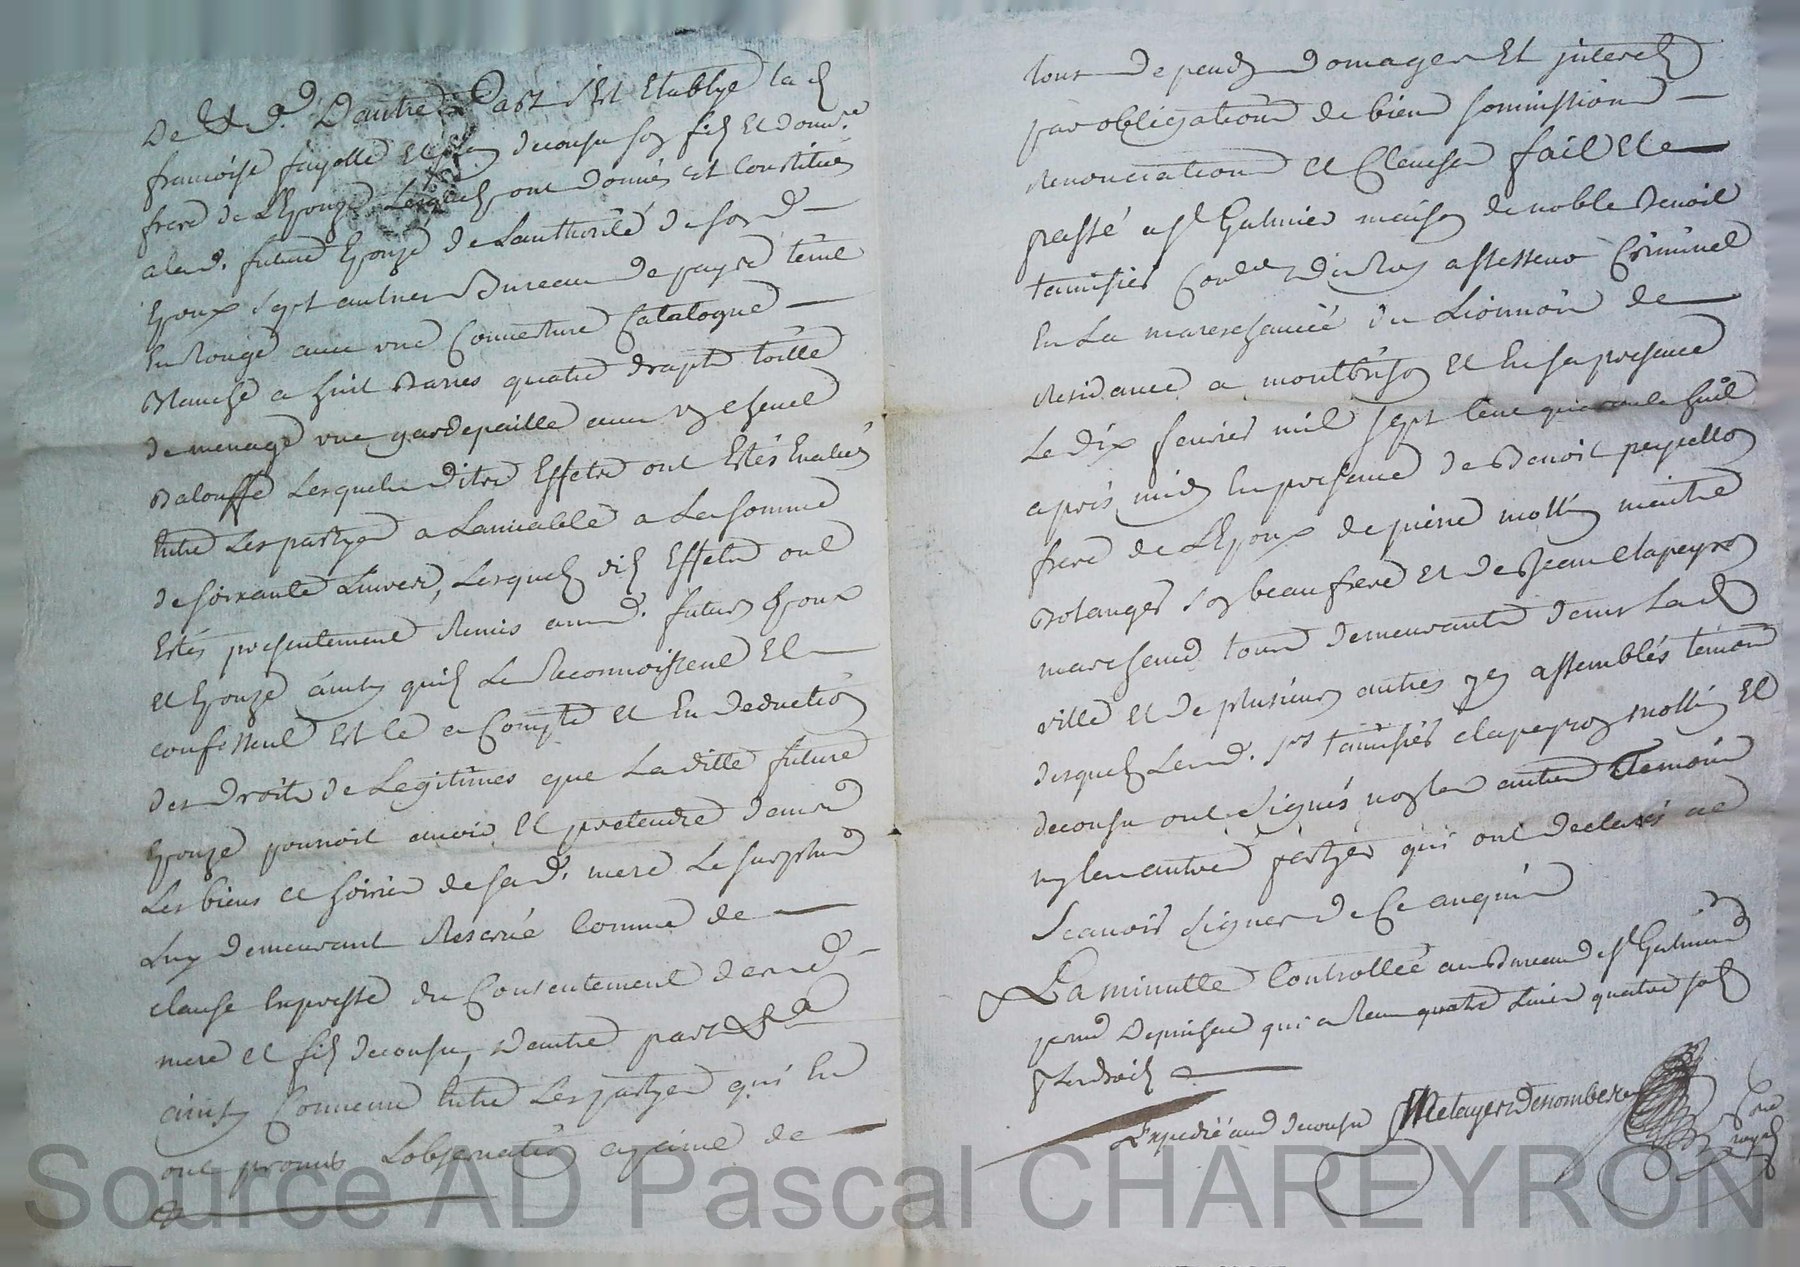 De Et d. Dautre Part s'Est Etablye lad
francoise fayolle et decousu son fils et donn.re
frere de L'Epouze Lesquels ont donnés et Constitués
a lad. future Epouze de Lauthorité de son d
Epoux sept aulnes Bureau de pays teint
En Rouge avec une Couverture Catalogne
Blanche a huit Barres quatre draps toille
de menage une gardepaille avec un chevet
Balouffe Lesquels dites Effets ont Estés Evalués
Entre Les partyes a Lamiable a La somme
de soixante Livres, Lesquels dits Effets ont
Estés presentement Remis aud. futurs Epoux
et Epouze ainsy quils Le Reconnoissent Et
confessent Et ce a Compte et En deduction
des droits de Legitimes que La ditte future
Epouze pourroit avoir Et pretendre dans
Les biens et hoirie de sa d. mere Le surplus
Luy demeurant Reservé Comme de
clause Expresse du Consentement desd
mere et fils decousu, D'autre part Et a
ainsy Convenu Entre Les partyes qui En
ont promis Lobservation a peine de
tous depends domages Et interets
par obligations de biens sommissions
Renonciations et Clauses fait Et
passé a St Galmier maison de noble Benoit
tamisier Con.er du Roy assesseur Criminel
En La mareschaucée du Lionnois de
Residance a montbrison Et En sa presance
Le dix fevrier mil sept cent quarante huit
apres midy En presance de Benoit
frere de L'Epoux de pierre mollin maitre
Bolanger son beaufrere Et de Jean Clapeyron
marchand tous demeurants dans Lad
ville et de plusieurs autres gens assemblés temoins
desquels Lesd. Srs tamisier clapeyron mollin Et
decousu ont signés non les autres temoins
ny les autres partyes qui ont declarés ne
Scavoir signer de Ce enquis
La minutte Controllée au Bureau de St Galmier
par Depuiseu qui a Receu quatre Livres quatre sols
p Les droits
Expedié aud decousu Metayer Descombes
No.re royal
Source AD Pascal CHAREYRON